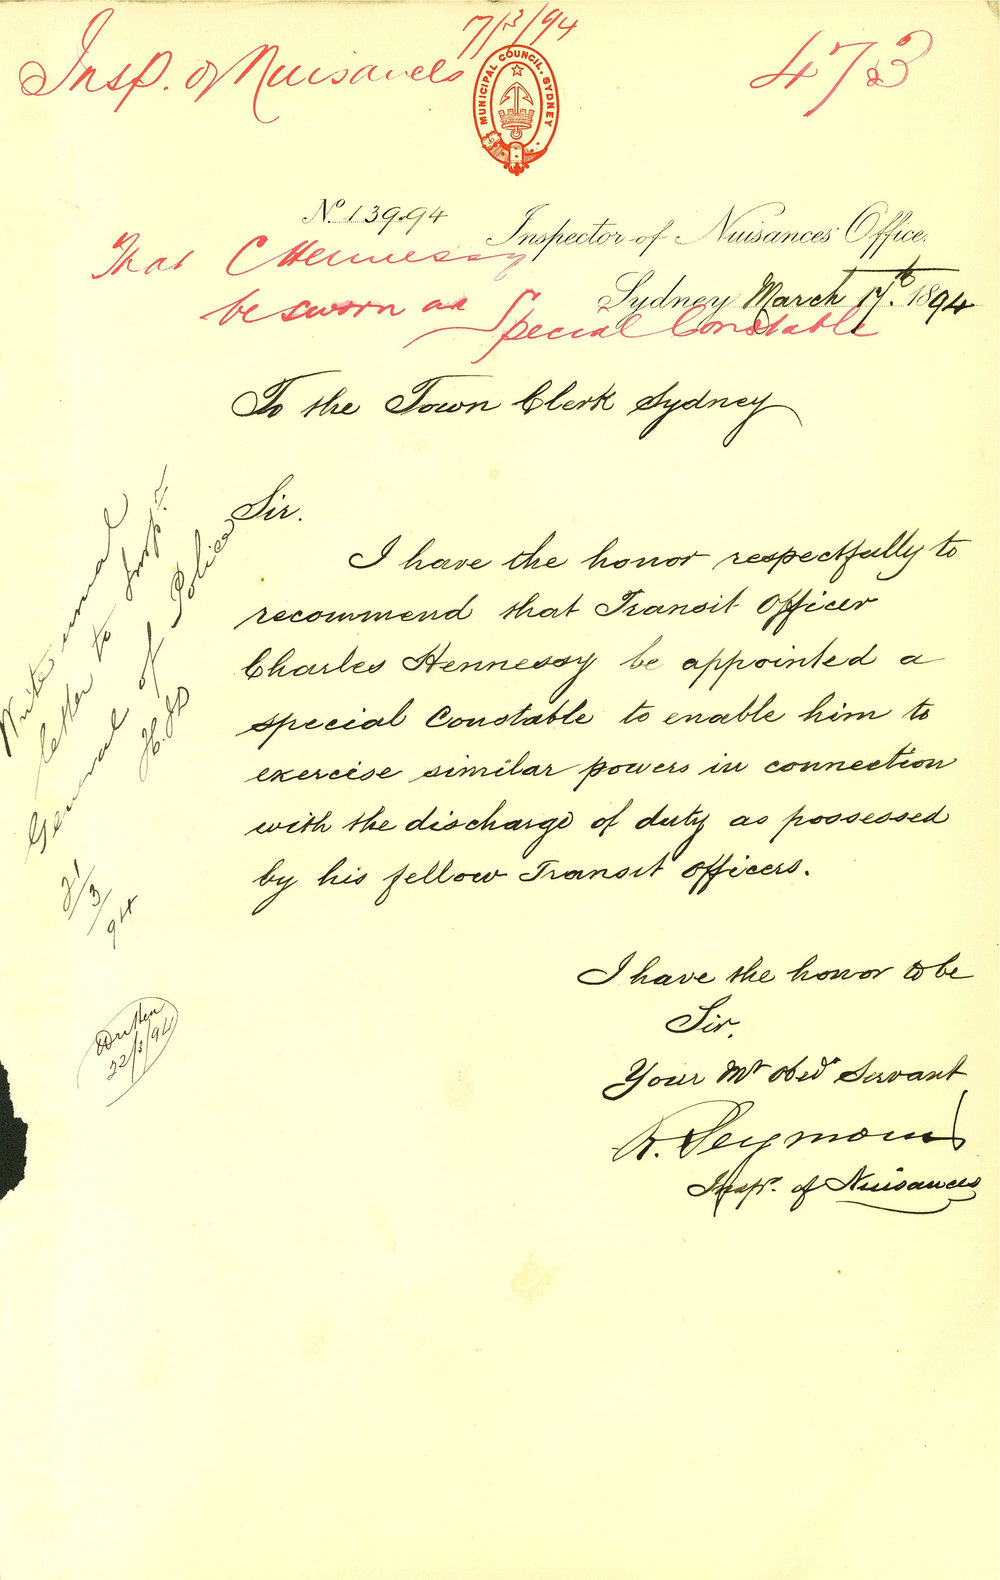 7/3/94
Insp. of Nuisances
473
MUNICIPAL COUNCIL. SYDNEY
No. 139.94
Inspector of Nuisances' Office.
That C Hennessy
Sydney March 7th. 1894
be sworn as Special Constable
To the Town Clerk Sydney
Sir.
I have the honor respectfully to
recommend that Transit Officer
Charles Hennessy be appointed a
special Constable to enable him to
exercise similar powers in connection
with the discharge of duty as possessed
by his fellow Transit Officers.
I have the honor to be
Sir.
Your Mt Obedt Servant
R. Seymour
Inspr. of Nuisances
Write usual
letter to Inspr
General of Police
/3/94
Written
22/3/94